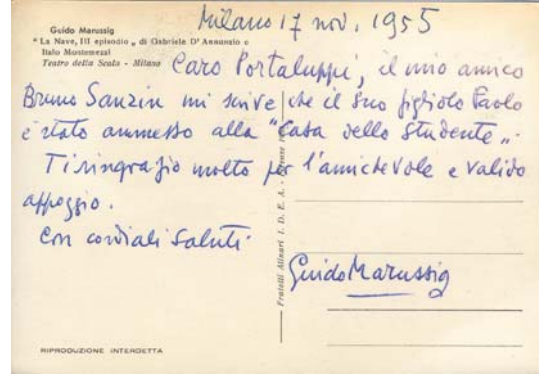 Milano 17 nov. 1955
Guido Marussig
"La Nave, III episodio„ di Gabriele D'Annunzio e
Italo Montemezzi
Teatro della Scala - Milano
Caro Portaluppi, il mio amico
Bruno Sanzin mi scrive che il suo figliolo Paolo
è stato ammesso alla "Casa dello Studente„.
Ti ringrazio molto per l'amichevole e valido
appoggio.
Con cordiali saluti.
Guido Marussig
Fratelli Alinari I. D. E. A. - Firenze
RIPRODUZIONE INTERDETTA